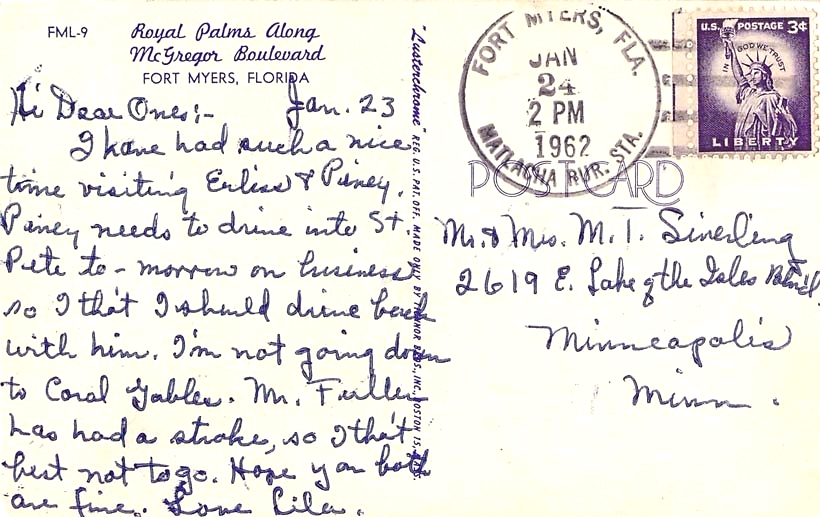 FML-9
Royal Palms Along
McGregor Boulevard
FORT MYERS, FLORIDA
Hi Dear Ones:- Jan. 23
I have had such a nice
time visiting Erliss & Piney.
Piney needs to drive into St.
Pete to-morrow on business
so I tho't I should drive back
with him. I'm not going down
to Coral Gables. Mr. Fuller
has had a stroke, so I tho't
best not to go. Hope you both
are fine. Love Lila.
"Lusterchrome" REG. U.S. PAT. OFF. MADE ONLY BY BROS., INC., BOSTON 15,
FORT MYERS, FLA.
JAN
24
2 PM
1962
MATLACHA RUR. STA.
U.S. POSTAGE 3¢
IN GOD WE TRUST
LIBERTY
POST CARD
Mr. & Mrs. M. T.
2619 E. Lake of the Isles Blvd.
Minneapolis
Minn.